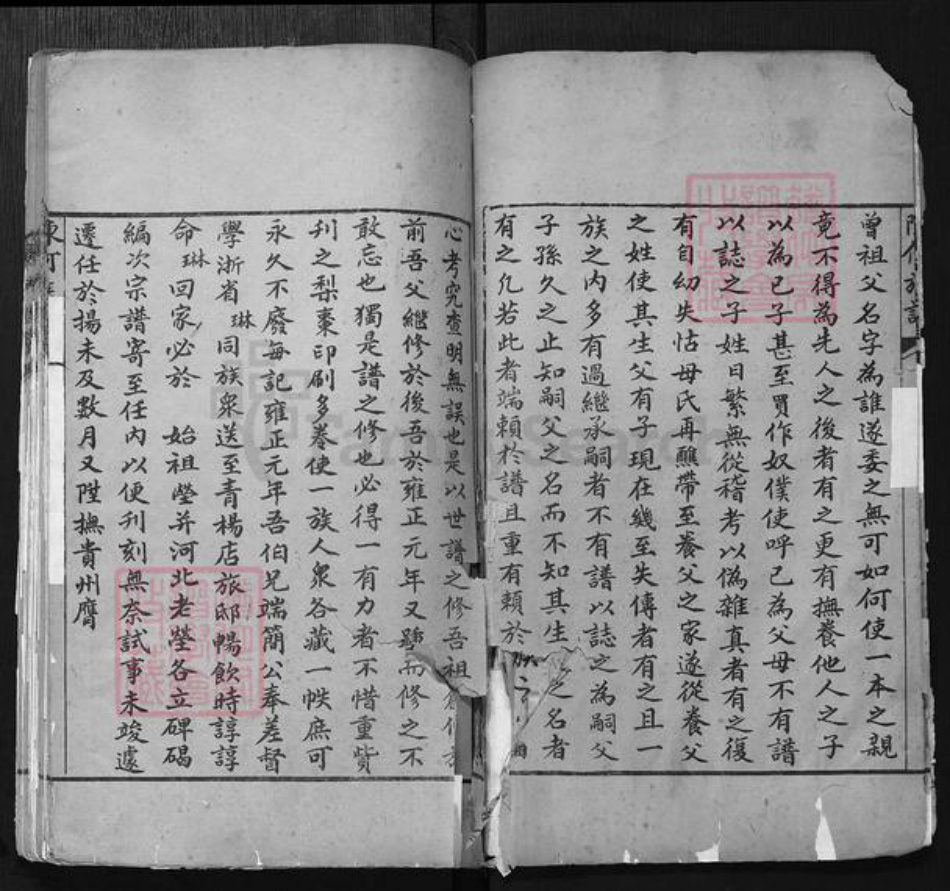 曾祖父名字為誰遂委之無可如何使一本之親
竟不得為先人之後者有之更有撫養他人之子
以為已子甚至買作奴僕使呼己為父母不有譜
以誌之子姓日繁無從稽考以偽雜真者有之復
有自幼失怙母氏再醮帶至養父之家遂從養父
之姓使其生父有子現在幾至失傳者有之且一
族之內多有過繼承嗣者不有譜以誌之為嗣父
子孫久之止知嗣父之名而不知其生之名者
有之凡若此者端賴於譜且重有賴於
心考究查明無誤也是以世譜之修吾祖
前吾父繼修於後吾於雍正元年又踵而修之不
敢忘也獨是譜之修也必得一有力者不惜重貲
刊之梨棗印刷多卷使一族人眾各藏一帙庶可
永久不廢每記雍正元年吾伯兄端簡公奉差督
學浙省琳同族眾送至青楊店旅邸暢飲時諄諄
命琳回家必於 始祖塋并河北老塋各立碑碣
編次宗譜寄至任內以便刊刻無奈試事未竣遽
遷任於揚未及數月又陞撫貴州膺